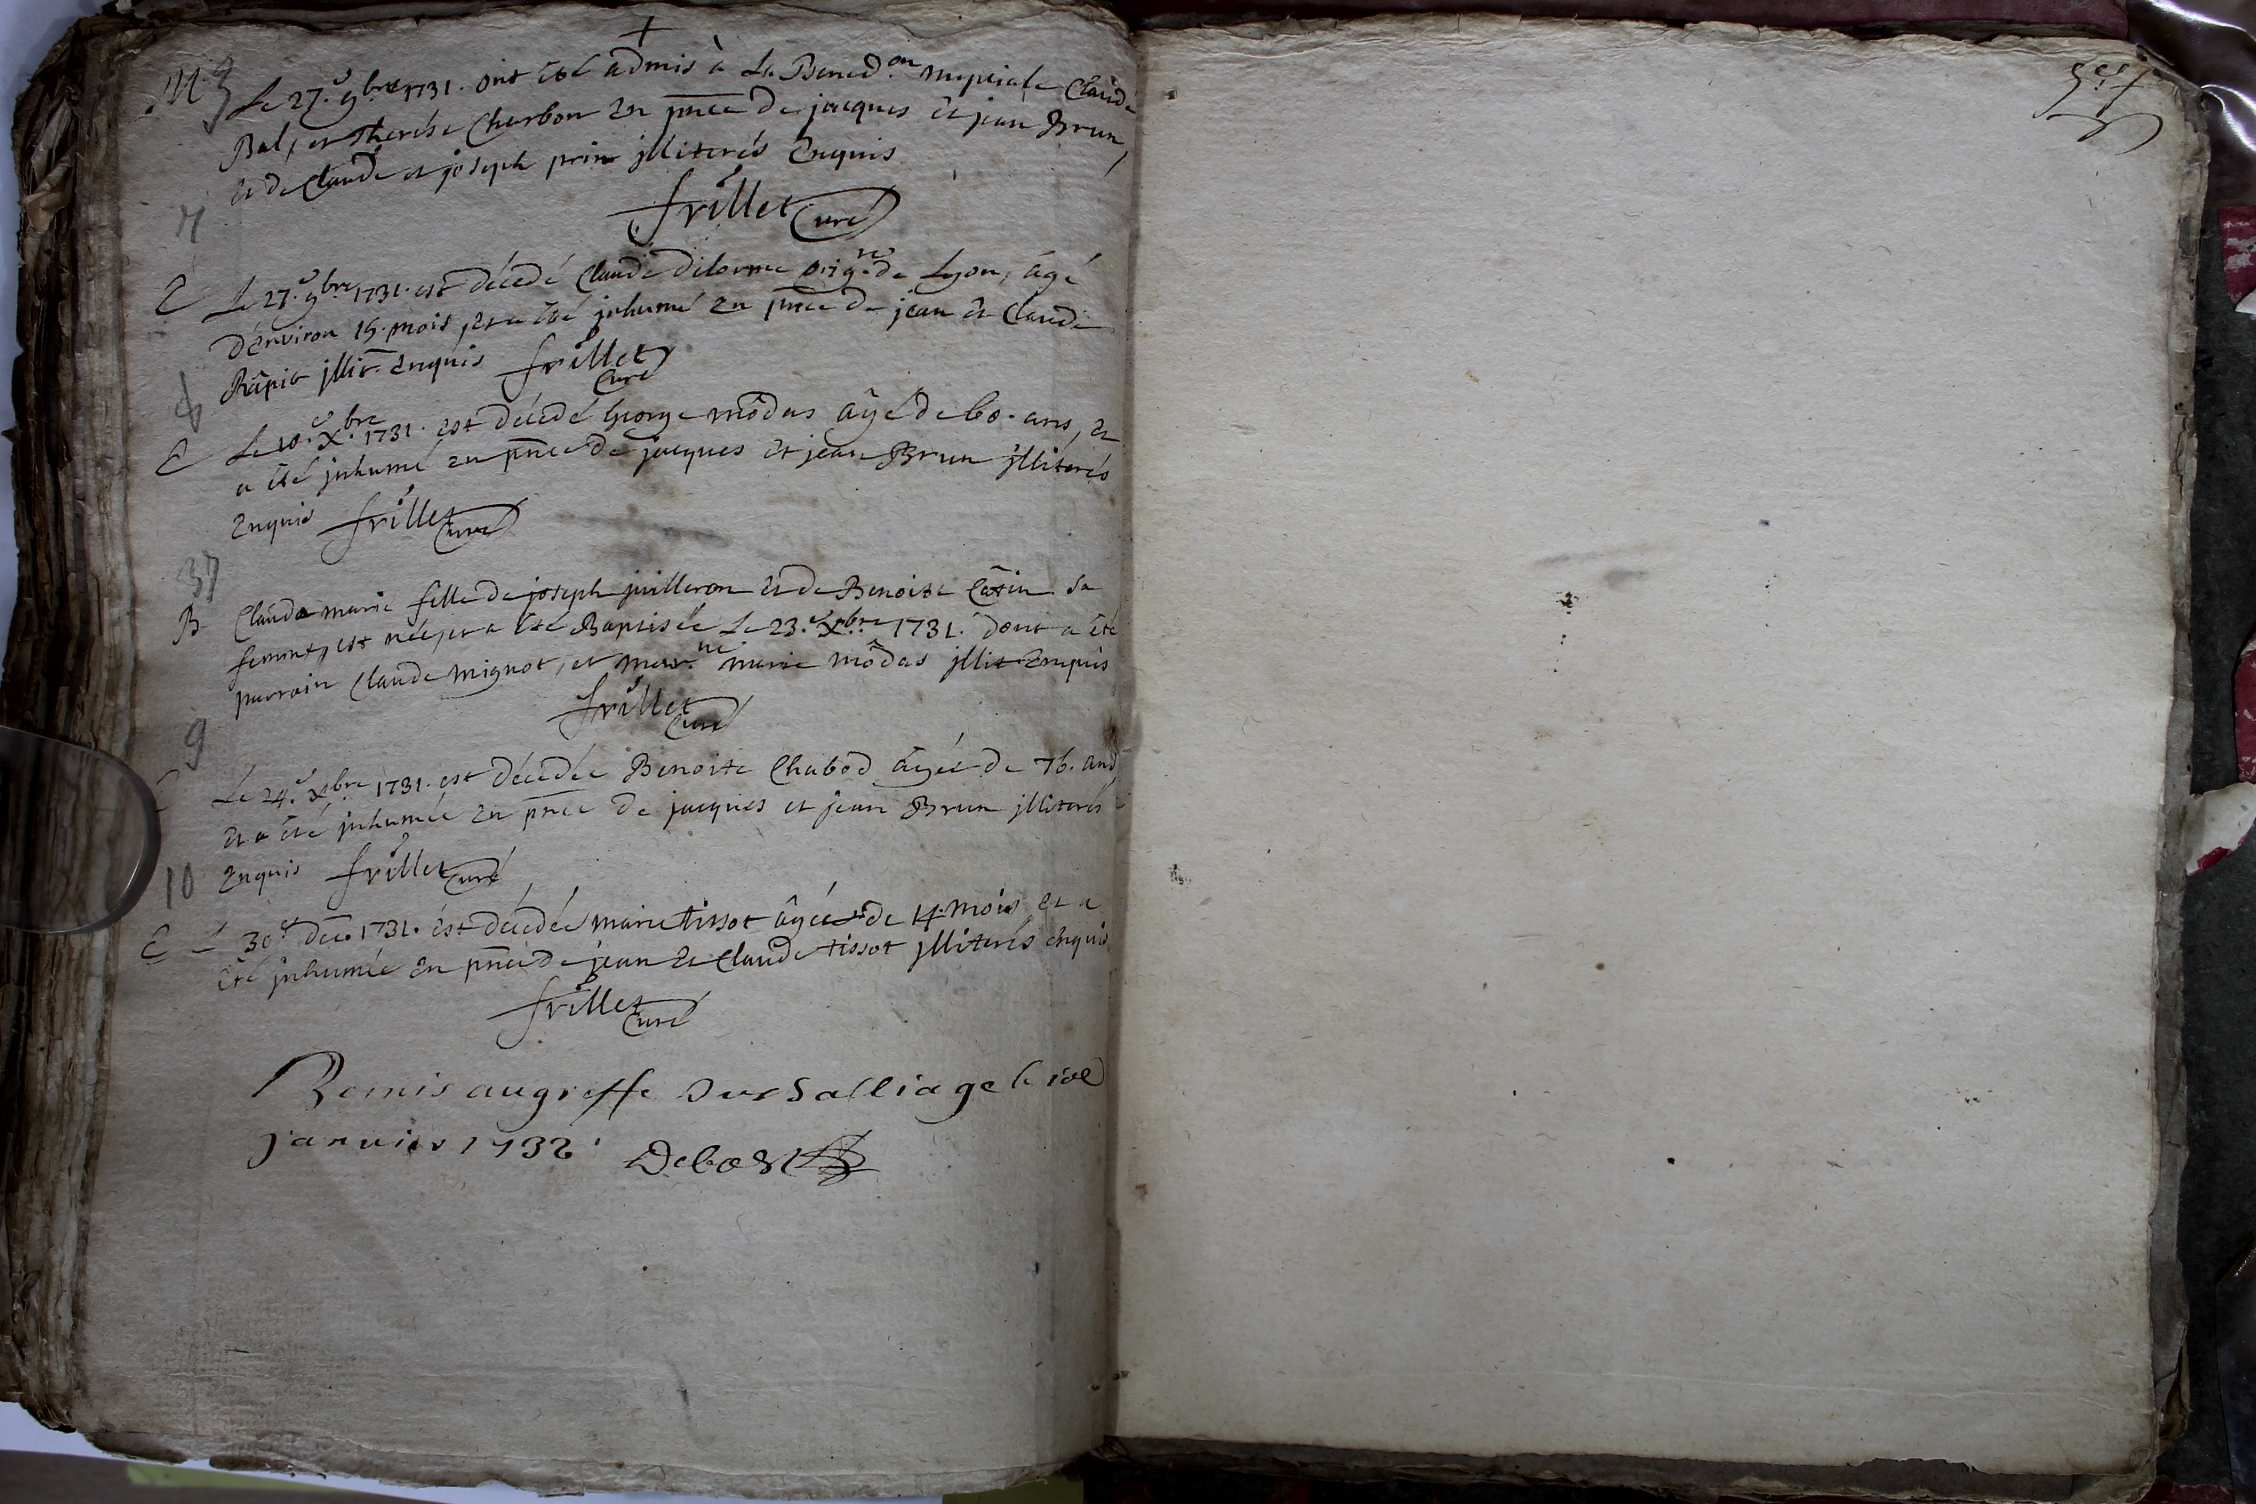 +
M. 9 Le 27.e 9.bre 1731. ont été admis à La Bened.on nuptiale Claude
Bal, et Therése Charbon en pñce de jacques et jean Brun,
et de Claude et joseph prin jlliterés Enquis
frillet Curé
7
E Le 27.e 9.bre 1731. est décedé Claude delorme orig.re de Lyon, âgé
d'environ 15. mois, et a été jnhumé en pñce de jean et Claude
Râpit jllit. Enquis frillet
Curé
8
E Le 10.e X.bre 1731. est décedé george môdas âgé de 60. ans, et
a été jnhumé en pñce de jacques et jean Brun jlliterés
Enquis frillet Curé
37
B Claude marie fille de joseph juilleron et de Benoite Câtin sa
femme, est née, et a été Baptisée Le 23.e X.bre 1731. dont a été
parrain Claude mignot, et mar.ne marie môdas jllit Enquis
frillet
Curé
9
E Le 24.e X.bre 1731. est décedée Benoite Chabod âgée de 76. ans
et a été jnhumée en pñce de jacques et jean Brun jlliterés
Enquis frillet Curé
10
E L 30.e dec. 1731. est décedée marie tissot âgée de 14. mois et a
été jnhumée en pñce de jean et Claude tissot jlliterés enquis
frillet
Curé
Remis au greffe du Balliage le
janvier 1732.